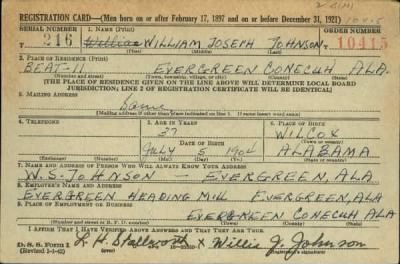 REGISTRATION CARD—(Men born on or after February 17, 1897 and on or before December 31, 1921)
SERIAL NUMBER 1. NAME (Print) ORDER NUMBER
216 William WILLIAM JOSEPH JOHNSON 10415
(First) (Middle) (Last)
2. PLACE OF RESIDENCE (Print)
BEAT-11 EVERGREEN CONECUH ALA.
(Number and street) (Town, township, village, or city) (County) (State)
[THE PLACE OF RESIDENCE GIVEN ON THE LINE ABOVE WILL DETERMINE LOCAL BOARD
JURISDICTION; LINE 2 OF REGISTRATION CERTIFICATE WILL BE IDENTICAL]
3. MAILING ADDRESS
Same
[Mailing address if other than place indicated on line 2. If same insert word same]
4. TELEPHONE 5. AGE IN YEARS 6. PLACE OF BIRTH
37 WILCOX
DATE OF BIRTH (Town or county)
JULY 5 1904 ALABAMA
(Exchange) (Number) (Mo.) (Day) (Yr.) (State or country)
7. NAME AND ADDRESS OF PERSON WHO WILL ALWAYS KNOW YOUR ADDRESS
W. S. JOHNSON EVERGREEN, ALA
8. EMPLOYER'S NAME AND ADDRESS
EVERGREEN HEADING MILL EVERGREEN, ALA
9. PLACE OF EMPLOYMENT OR BUSINESS
EVERGREEN CONECUH ALA
(Number and street or R. F. D. number) (Town) (County) (State)
I AFFIRM THAT I HAVE VERIFIED ABOVE ANSWERS AND THAT THEY ARE TRUE.
D. S. S. FORM 1
(Revised 1-1-42) Stallworth x Willie J. Johnson